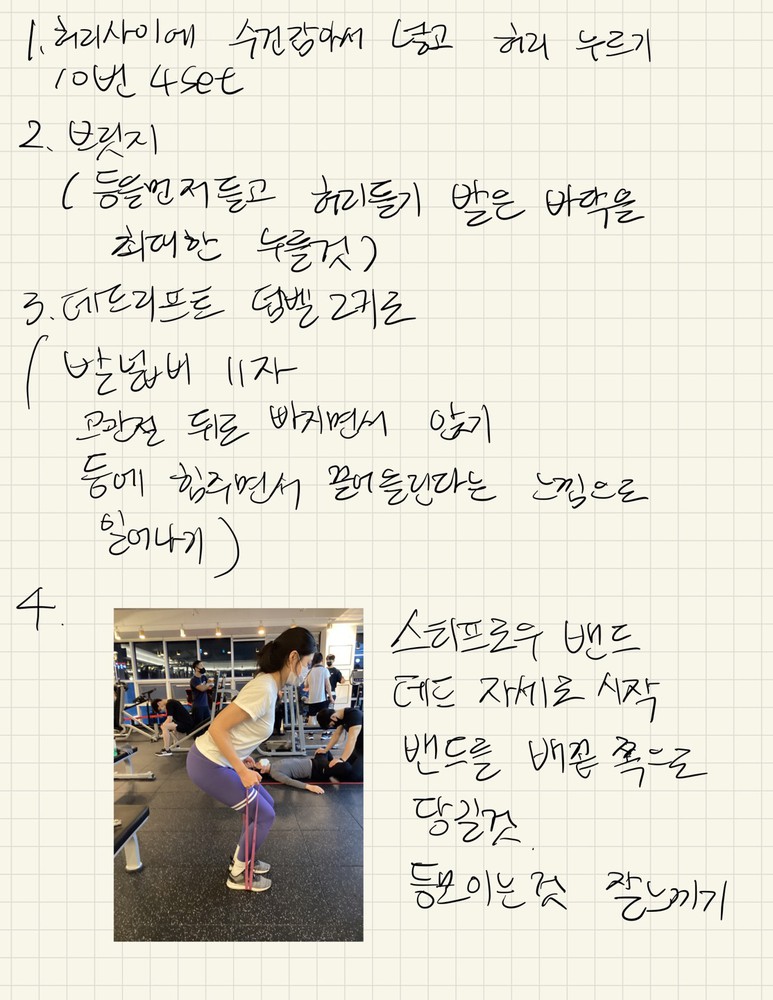 1. 허리사이에 수건감아서 넣고 허리 누르기
10번 4set
2. 브릿지
( 등을먼저들고 허리들기 발은 바닥을
최대한 누를것 )
3. 데드리프트 덤벨 2키로
( 발넓비 11자
고관절 뒤로 빠지면서 앉기
등에 힘주면서 끌어올린다는 느낌으로
일어나기 )
4.
스티프로우 밴드
데드 자세로 시작
밴드를 배꼽 쪽으로
당길것.
등모이는것 잘느끼기